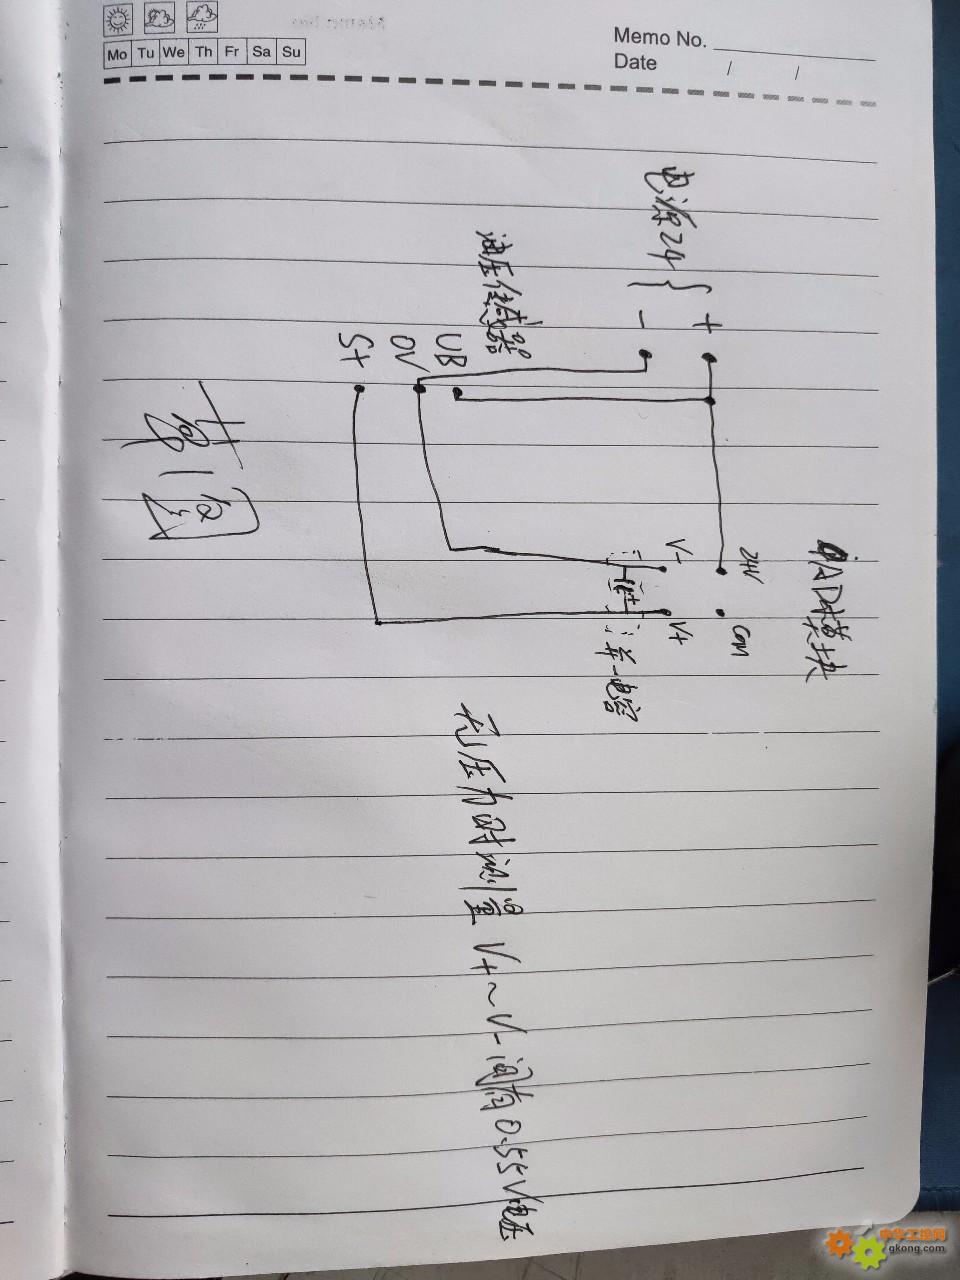 Memo No.
Date / /
Mo Tu We Th Fr Sa Su
电源24 { + -
油压传感器
UB
0V
S+
AD模块
24V
COM
V-
V+
并一电容
第1图
无压力时测量V+~V-间有0.55V电压
中华工控网
gkong.com